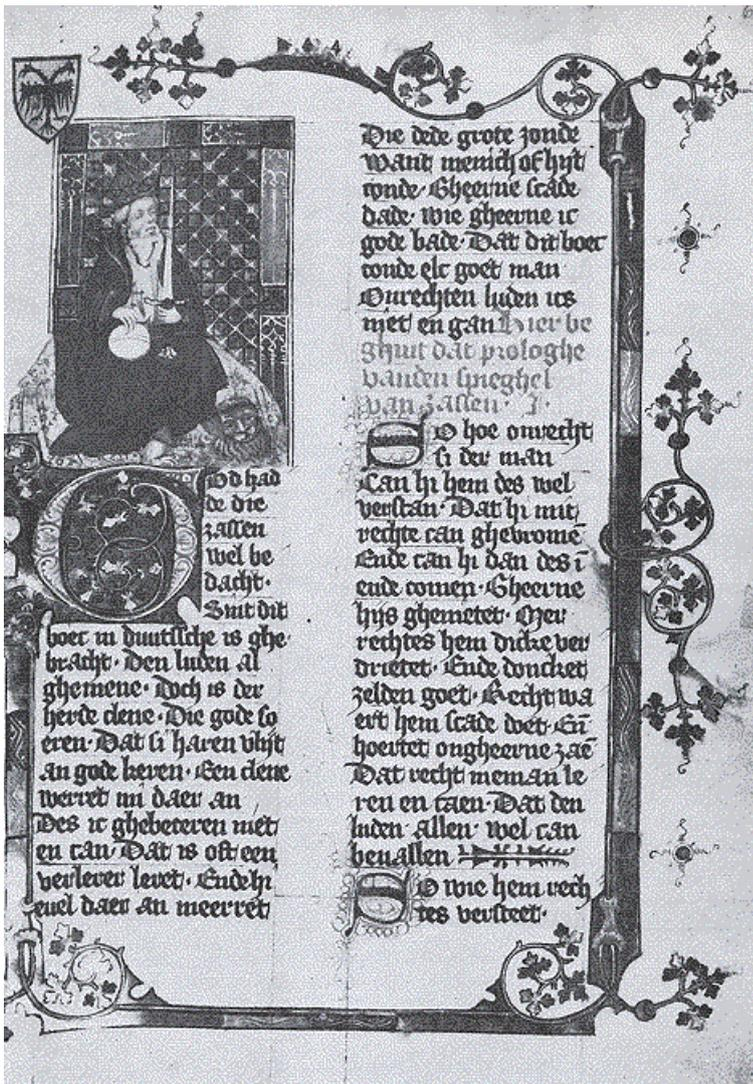 God had
de die
zassen
wel be
dacht·
Sint dit
boec in duutssche is ghe
bracht· Den luden al
ghemene· Doch is der
herde clene· Die gode so
eren· Dat si haren vlijt
an gode keren· Een clene
werret mi daer an
Des ic ghebeteren niet
en can· Dat is oft een
levet· Ende hi
evel daer an meerret
Die dede grote zonde
Want menich of hijt
conde· Gheerne scade
dade· wie gheerne ic
gode bade· Dat dit boec
conde elc goet man
Onrechten luden ics
niet en gan Hier be
ghint dat prologhe
vanden spieghel
van zassen· J·
So hoe onrecht
si der man
Can hi hem des wel
verstan· Dat hi mit
rechte can ghevromē
Ende can hi dan des ī
ende comen· Gheerne
hijs ghemetet· Mer
rechtes hem dicke ver
drietet· Ende doncket
zelden goet· Recht wa
ert hem scade doet· Eñ
hoertet ongheerne zaē
Dat recht nieman le
ren en caen· Dat den
luden allen wel can
bevallen
So wie hem rech
tes versteet·